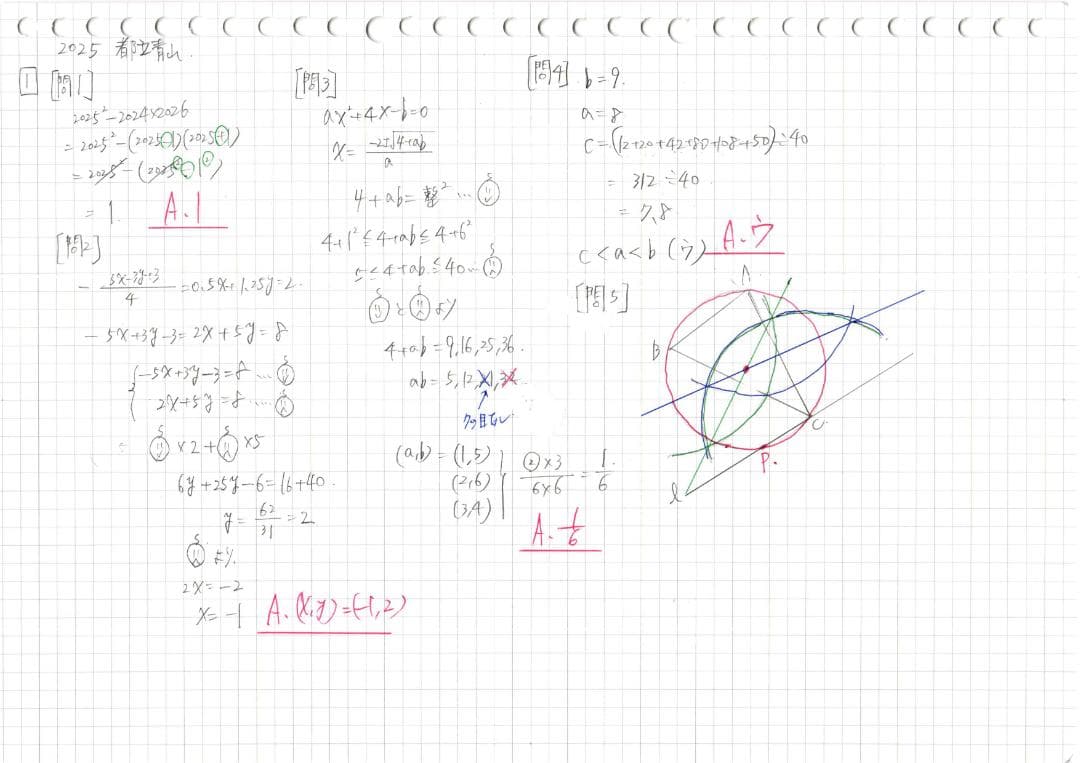 2025 都立青山.
1 [問1]
2025²-2024×2026
=2025²-(2025-1)(2025+1)
=2025²-(2025²-1²)
=1.
A.1
[問2]
-\frac{5x-3y+3}{4}=0.5x+1.25y=2.
-5x+3y-3=2x+5y=8
{-5x+3y-3=8 …
2x+5y=8 …
×2+ ×5
6y+25y-6=16+40.
y=\frac{62}{31}=2
より.
2x=-2
x=-1
A.(x,y)=(-1,2)
[問3]
ax²+4x-b=0
x=\frac{-2±√4+ab}{a}
4+ab=整²…
4+1²≦4+ab≦4+6²
5≦4+ab≦40…
と より
4+ab=9,16,25,36.
ab=5,12,21,32
7の目ない
(a,b)=(1,5)
(2,6)
(3,4)
\frac{②×3}{6×6}=\frac{1}{6}
A.\frac{1}{6}
[問4] b=9.
a=8
c=(12+20+42+80+108+50)÷40
=312÷40
=7.8
c<a<b (ウ)
A.ウ
[問5]
A
B
C
P.
l